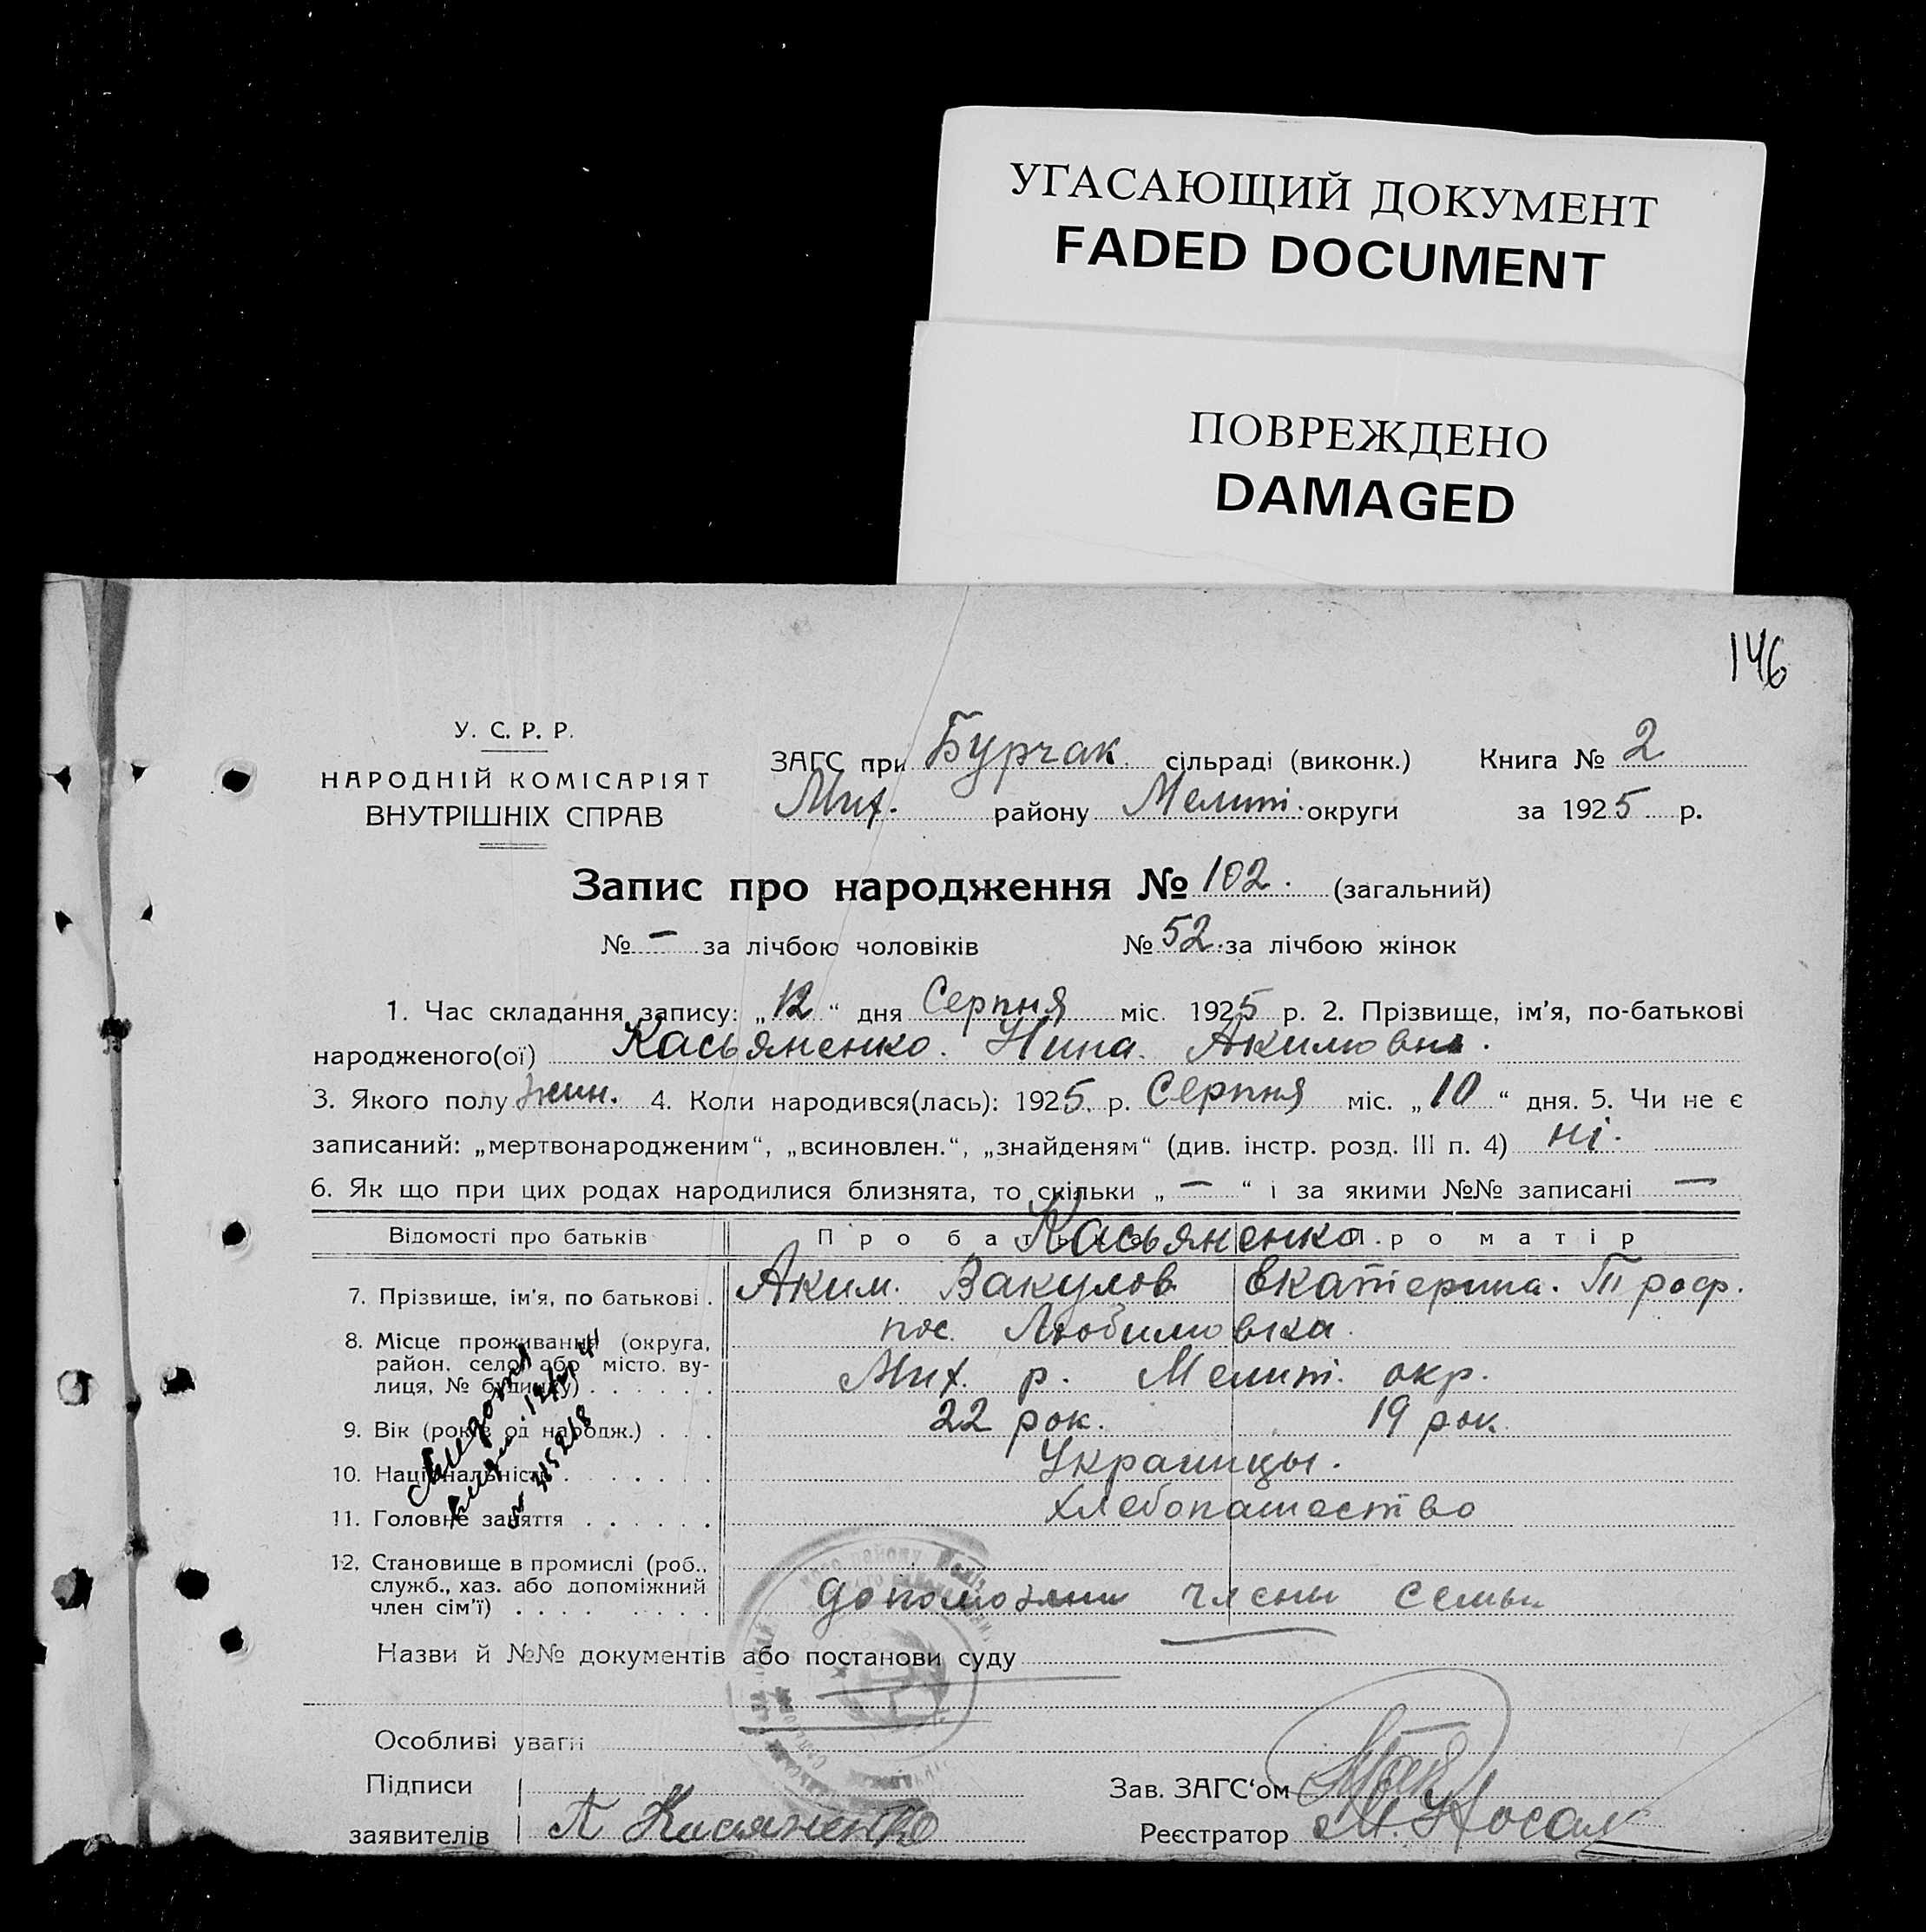 УГАСАЮЩИЙ ДОКУМЕНТ
FADED DOCUMENT
ПОВРЕЖДЕНО
DAMAGED
146
У. С. Р. Р.
НАРОДНІЙ КОМІСАРІЯТ
ВНУТРІШНІХ СПРАВ
ЗАГС при Бурчак сільраді (виконк.) Книга № 2
Мих. району Мелит. округи за 1925 р.
Запис про народження № 102. (загальний)
№ — за лічбою чоловіків № 52. за лічбою жінок
1. Час складання запису: „12“ дня Серпня міс. 1925 р. 2. Прізвище, ім’я, по-батькові
народженого(ої) Касьяненко. Нина. Акимовна.
3. Якого полу жин. 4. Коли народився(лась): 1925. р. Серпня міс. „10“ дня. 5. Чи не є
записаний: „мертвонародженим“, „всиновлен.“, „знайденям“ (див. інстр. розд. III п. 4) ні.
6. Як що при цих родах народилися близнята, то скільки „—“ і за якими №№ записані —
Відомості про батьків Про батька Про матір
Касьяненко.
7. Прізвище, ім’я, по батькові . Аким. Вакулов Екатерина. Троф.
8. Місце проживання (округа, пос. Любимовка.
район, село або місто, ву-
лиця, № будинку) . . . . . . Мих. р. Мелит. окр.
9. Вік (років од народж.) . . . 22 рок. 19 рок.
10. Національність . . . . . . . Украинцы.
11. Головне заняття . . . . . . Хлебопашество
12. Становище в промислі (роб.,
служб., хаз. або допоміжний
член сім’ї) . . . . . . . . . допоможни члени семьи
№ 315268
Назви й №№ документів або постанови суду
Особливі уваги
Підписи Зав. ЗАГС‘ом
заявителів А Касяненко Реєстратор М. Носак